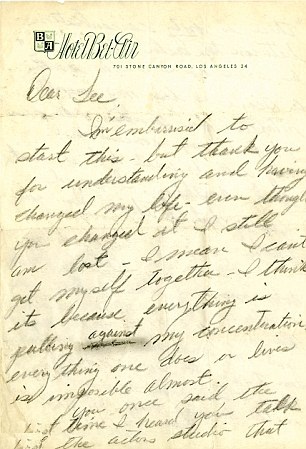 B A Hotel Bel-Air
701 STONE CANYON ROAD, LOS ANGELES 24
Dear Lee,
I'm embarrisid to
start this - but thank you
for understanding and having
changed my life - even though
you changed it I still
am lost - I mean I can't
get myself together - I think
its because everything is
pulling against my concentration
everything one does or lives
is impossible almost.
You once said, the
first time I heard you talk
at the actors studio that